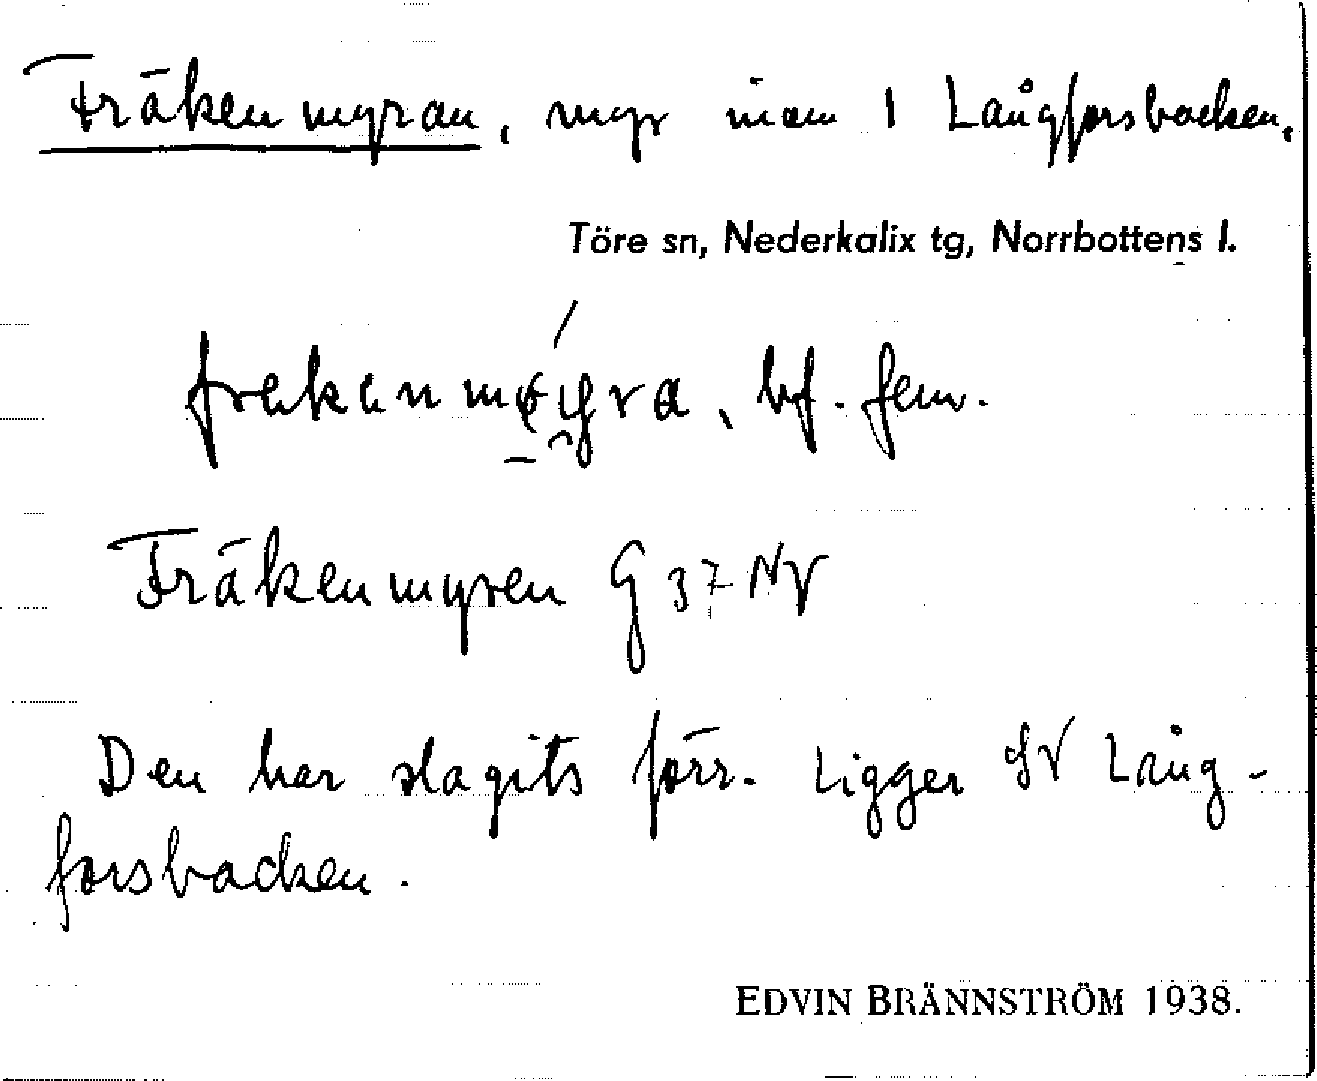 Fräkenmyran, myr inom 1 Långforsbacken.
Töre sn, Nederkalix tg, Norrbottens l.
bf. fem.
Fräkenmyren G 37 NV
Den har slagits förr. Ligger SV Lång-
forsbacken.
EDVIN BRÄNNSTRÖM 1938.